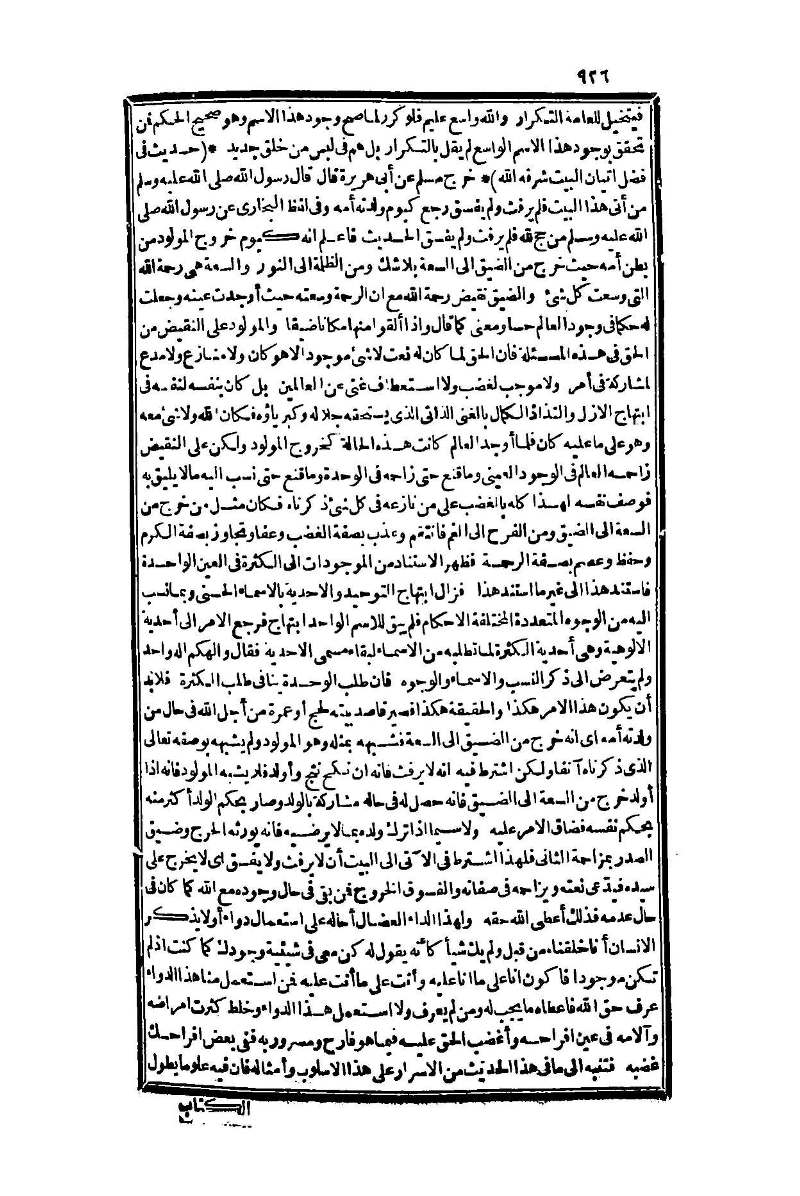 ٩٢٦
فيتخيل للعامة التكرار والله واسع عليم فلو كرر لما صح وجود هذا الاسم وهو صحيح الحكم فمن
تحقق بوجود هذا الاسم الواسع لم يقل بالتكرار بل هم فى لبس من خلق جديد *(حديث فى
فضل اتيان البيت شرفه الله)* خرج مسلم عن أبى هريرة قال قال رسول الله صلى الله عليه وسلم
من أتى هذا البيت فلم يرفث ولم يفسق رجع كيوم ولدته أمه وفى لفظ البخارى عن رسول الله صلى
الله عليه وسلم من حج لله فلم يرفث ولم يفسق الحديث فاعلم انه كيوم خروج المولود من
بطن أمه حيث خرج من الضيق الى السعة بلاشك ومن الظلمة الى النور والسعة هى رحمة الله
التى وسعت كل شئ والضيق نقيض رحمة الله مع ان الرحمة وسعته حيث أوجدت عينه وجعلت
له حكما فى وجود العالم حسا ومعنى كما قال واذا ألقوا منها مكانا ضيقا والمولود على النقيض من
الحق فى هذه المسئلة فان الحق لما كان له نعت لاشئ موجود الا هو كان ولا منازع ولا مدع
لمشاركة فى أمر ولا موجب لغضب ولا استعطاف غنى عن العالمين بل كان بنفسه لنفسه فى
ابتهاج الازل والتذاذ الكمال بالغنى الذاتى الذى يستحقه جلاله وكبرياؤه فكان الله ولا شئ معه
وهو على ما عليه كان فلما أوجد العالم كانت هذه الحالة كخروج المولود ولكن على النقيض
زاحمه العالم فى الوجود العينى وما قنع حتى زاحمه فى الوحدة وما قنع حتى نسب اليه مالا يليق به
فوصف نفسه لهذا كله بالغضب على من نازعه فى كل شئ ذكرناه فكان مثل من خرج من
السعة الى الضيق ومن الفرح الى الغم فانتقم وعذب بصفة الغضب وعفا وتجاوز بصفة الكرم
وحفظ وعصم بصفة الرحمة فظهر الاستناد من الموجودات الى الكثرة فى العين الواحدة
فاستند هذا الى غير ما استند هذا فزال ابتهاج التوحيد والاحدية بالاسماء الحسنى وبما نسب
اليه من الوجوه المتعددة المختلفة الاحكام فلم يبق للاسم الواحد ابتهاج فرجع الامر الى أحدية
الالوهية وهى أحدية الكثرة لما تطلبه من الاسماء لبقاء مسمى الاحدية فقال والهكم اله واحد
ولم يتعرض الى ذكر النسب والاسماء والوجوه فان طلب الوحدة ينافى طلب الكثرة فلابد
أن يكون هذا الامر هكذا والحقيقة هكذا فصير قاصد بيته لحج أو عمرة من أجل الله فى حال من
ولدته أمه اى انه خرج من الضيق الى السعة فشبهه بمثله وهو المولود ولم يشبهه بوصفه تعالى
الذى ذكرناه آنفا ولكن اشترط فيه انه لا يرفث فانه ان نكح نتج وأولد فلا يشبه المولود فانه اذا
أولد خرج من السعة الى الضيق فانه حصل له فى حاله مشاركة بالولد وصار يحكم الولد أكثر منه
بحكم نفسه فضاق الامر عليه ولا سيما اذا ترك ولده بما لا يرضيه فانه يورثه الحرج وضيق
الصدر بمزاحمة الثانى فلهذا اشترط فى الآتى الى البيت أن لا يرفث ولا يفسق اى لا يخرج على
سيده فيدعى نعته ويزاحمه فى صفاته والفسوق الخروج فمن بقى فى حال وجوده مع الله كما كان فى
حال عدمه فذلك أعطى الله حقه ولهذا الداء العضال أحاله على استعمال دواء أولا يذكر
الانسان أنا خلقناه من قبل ولم يك شيأ كأنه يقول له كن معى فى شيئية وجودك كما كنت اذ لم
تكن موجودا فاكون انا على ما انا عليه وأنت على ما أنت عليه فمن استعمل منا هذا الدواء
عرف حق الله فاعطاه ما يجب له ومن لم يعرف ولا استعمل هذا الدواء وخلط كثرت امراضه
وآلامه فى عين افراحه وأغضب الحق عليه فيما هو فارح ومسرور به ففى بعض افراحك
غضبه فتنبه الى ما فى هذا الحديث من الاسرار على هذا الاسلوب وأمثاله فان فيه علوما يطول
الكتاب